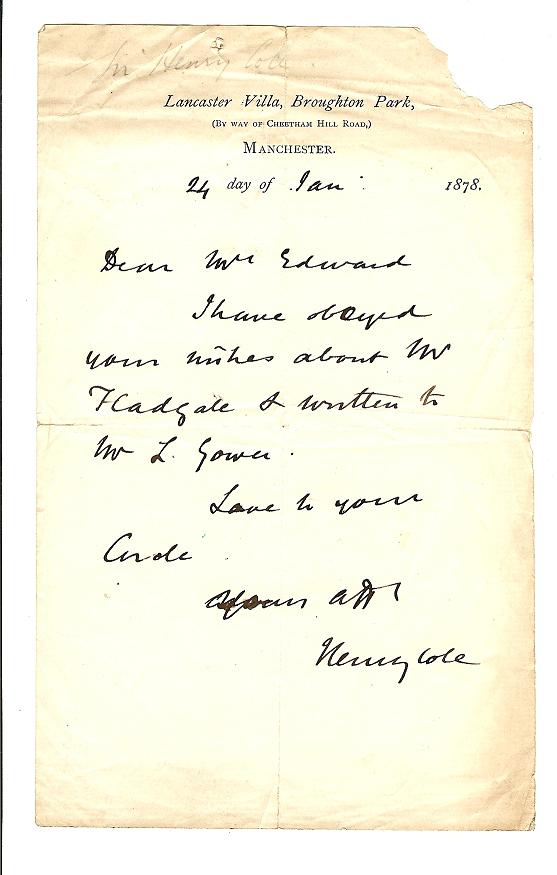 Sir Henry Cole
Lancaster Villa, Broughton Park,
(By way of Cheetham Hill Road,)
Manchester.
24 day of Jan 1878.
Dear Mrs Edward
I have obeyed
your wishes about Mr
Fladgate & written to
Mr L. Gower.
Love to your
Circle
Yours
Henry Cole